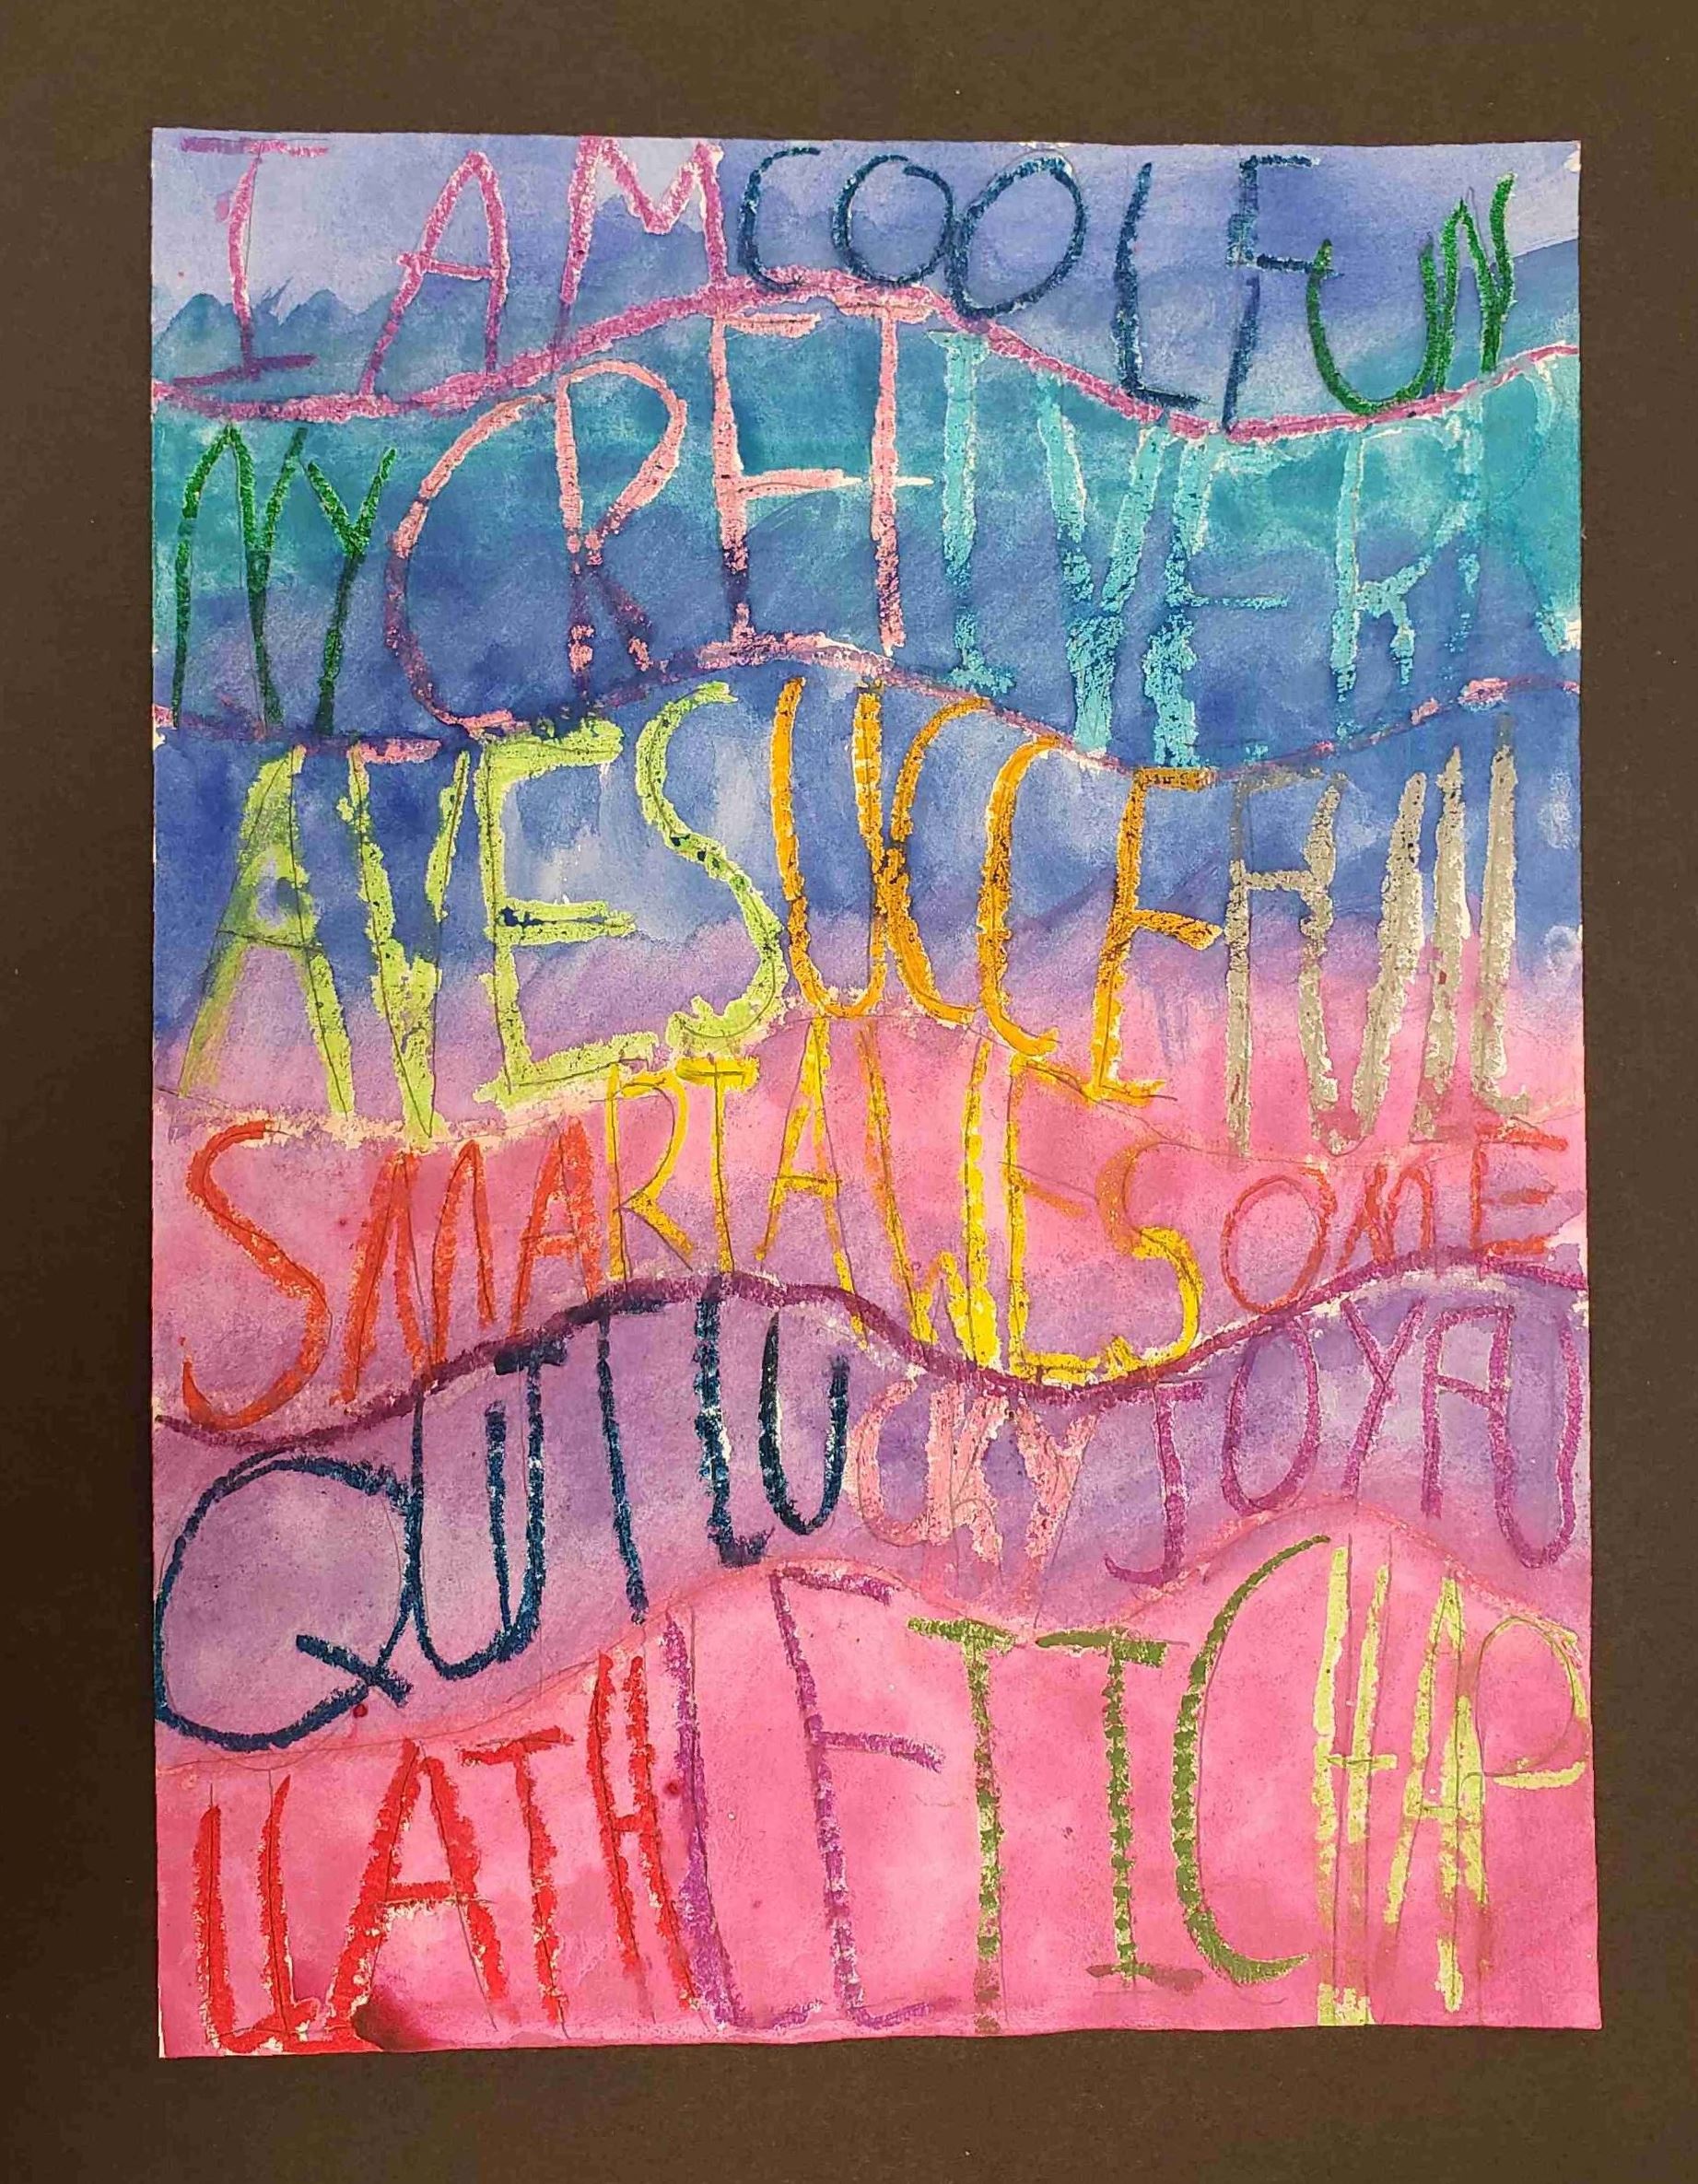 I AM COOL FUN
NY CRETIVE BR
AVE SUCCEFULL
SMART AWESOME
QUIT LUCKY JOYFU
LL ATHLETIC HAP